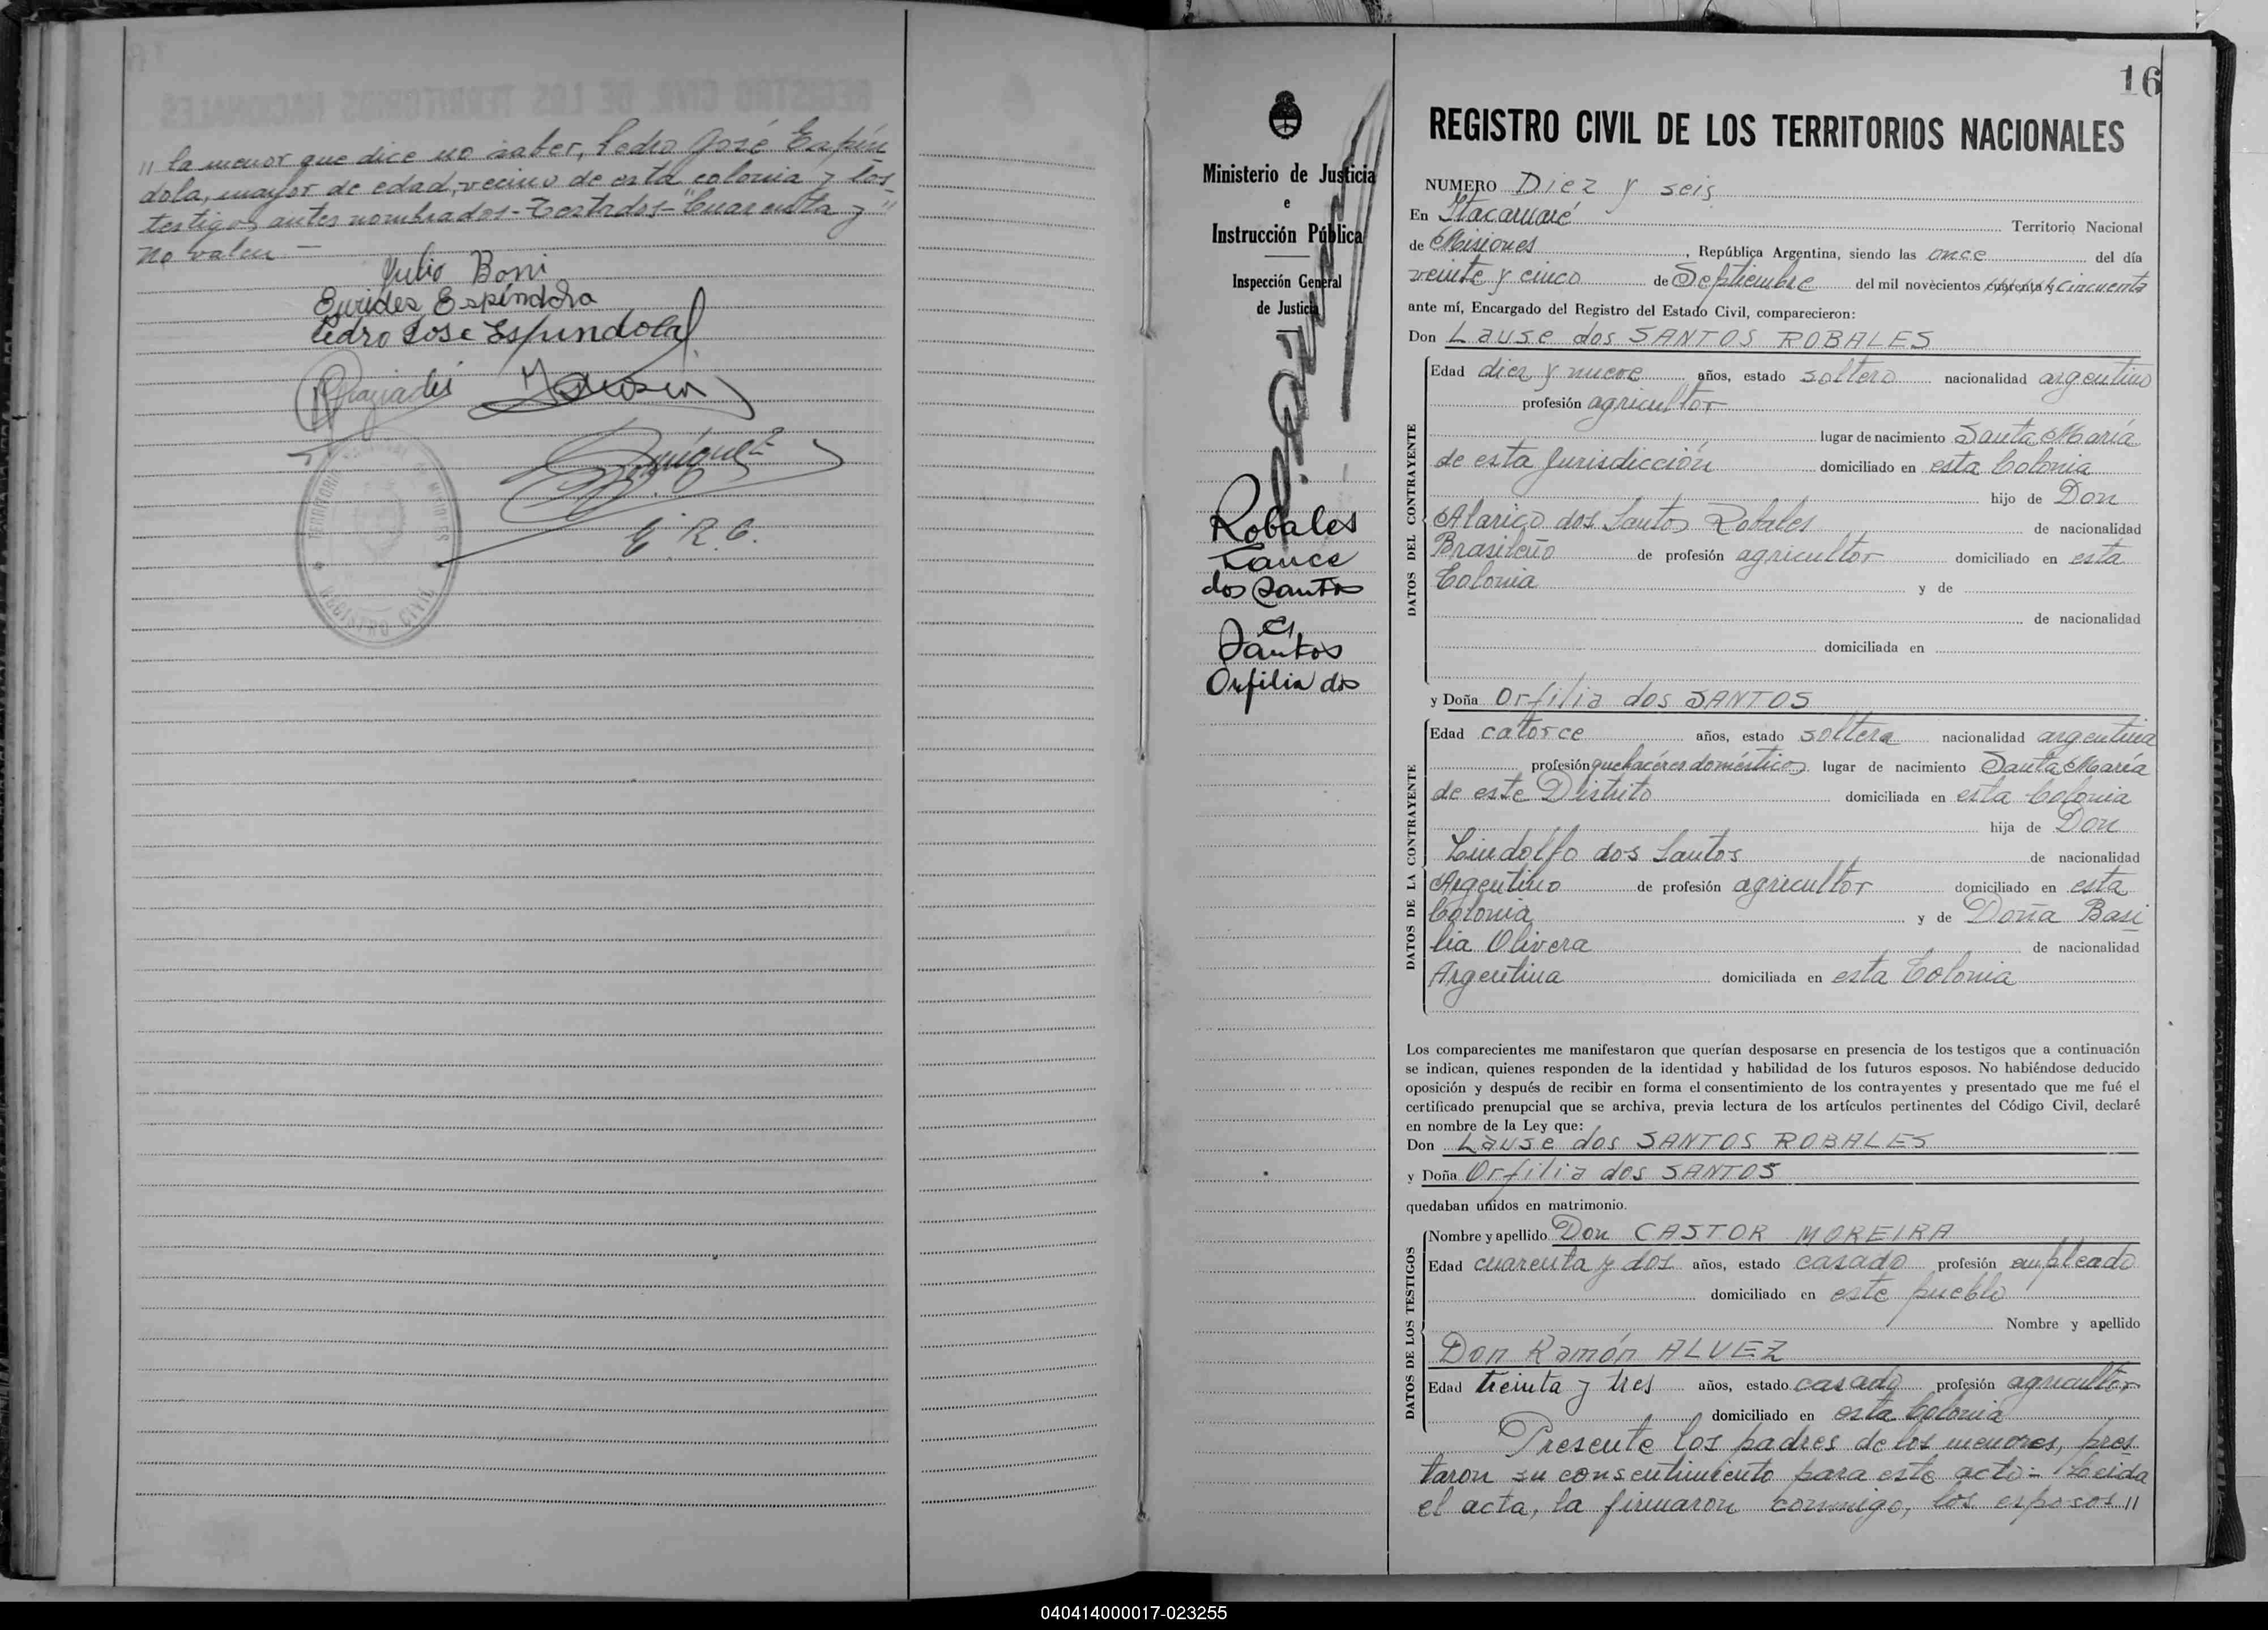 " la menor que dice no saber, Pedro José Espín
dola, mayor de edad, vecino de esta colonia y los
testigos antes nombrados - Testados - "Cuarenta y"
no valen —
Julio Boni
Eurides Espíndola
Pedro Jose Espindola
E. R. C.
TERRITORIO NACIONAL DE MISIONES
REGISTRO CIVIL
Ministerio de Justicia
e
Instrucción Pública
Inspección General
de Justicia
Robales
Lauce
dos Santos
Santos
Orfilia dos
16
REGISTRO CIVIL DE LOS TERRITORIOS NACIONALES
NUMERO Diez y seis
En Itacaruaré Territorio Nacional
de Misiones, República Argentina, siendo las once del día
veinte y cinco de Septiembre del mil novecientos cuarenta y cincuenta
ante mí, Encargado del Registro del Estado Civil, comparecieron:
Don Lause dos SANTOS ROBALES
DATOS DEL CONTRAYENTE
Edad diez y nueve años, estado soltero nacionalidad argentino
profesión agricultor
lugar de nacimiento Santa María
de esta Jurisdicción domiciliado en esta Colonia
hijo de Don
Alarico dos Santos Robales de nacionalidad
Brasileño de profesión agricultor domiciliado en esta
Colonia y de
de nacionalidad
domiciliada en
y Doña Orfilia dos SANTOS
DATOS DE LA CONTRAYENTE
Edad catorce años, estado soltera nacionalidad argentina
profesión quehaceres domésticos lugar de nacimiento Santa María
de este Distrito domiciliada en esta Colonia
hija de Don
Lindolfo dos Santos de nacionalidad
Argentino de profesión agricultor domiciliado en esta
Colonia y de Doña Basi
lia Olivera de nacionalidad
Argentina domiciliada en esta Colonia
Los comparecientes me manifestaron que querían desposarse en presencia de los testigos que a continuación
se indican, quienes responden de la identidad y habilidad de los futuros esposos. No habiéndose deducido
oposición y después de recibir en forma el consentimiento de los contrayentes y presentado que me fué el
certificado prenupcial que se archiva, previa lectura de los artículos pertinentes del Código Civil, declaré
en nombre de la Ley que:
Don Lause dos SANTOS ROBALES
y Doña Orfilia dos SANTOS
quedaban unidos en matrimonio.
DATOS DE LOS TESTIGOS
Nombre y apellido Don CASTOR MOREIRA
Edad cuarenta y dos años, estado casado profesión empleado
domiciliado en este pueblo
Nombre y apellido
Don Ramón ALVEZ
Edad treinta y tres años, estado casado profesión agricultor
domiciliado en esta Colonia
Presente los padres de los menores, pres
taron su consentimiento para este acto - Leida
el acta, la firmaron conmigo, los esposos "
040414000017-023255